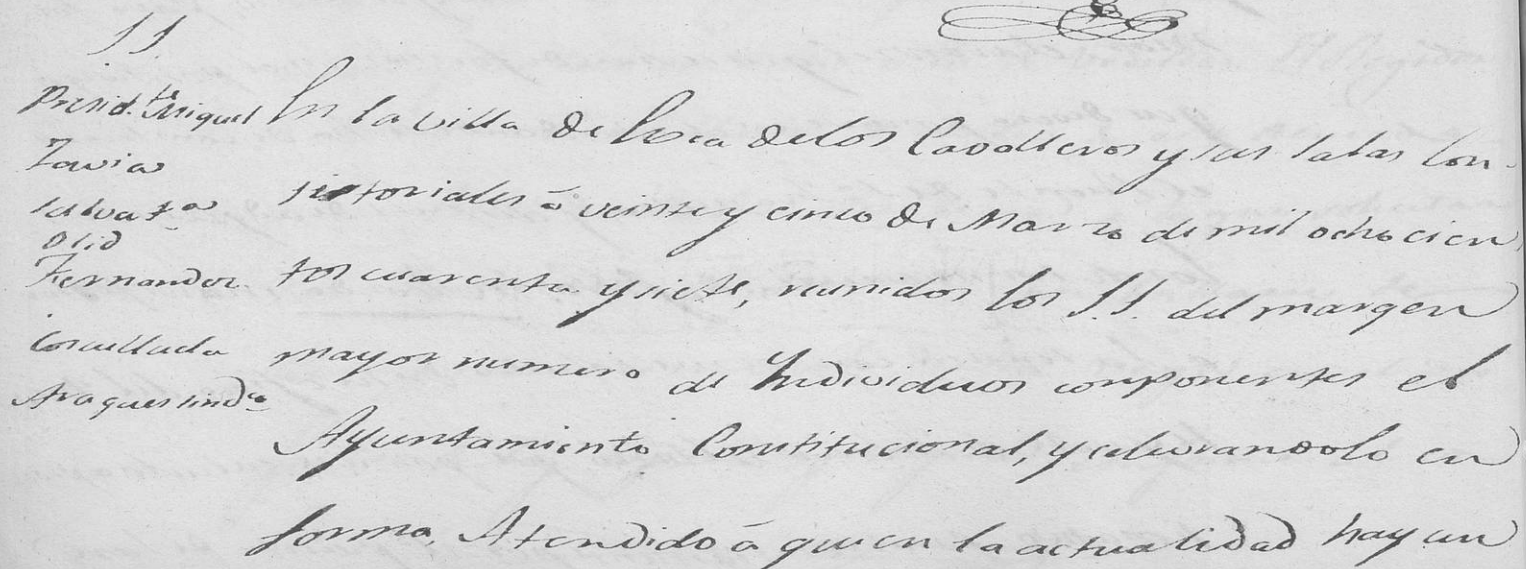 S S
Presid.te Miguel
Zavia
Salvat.a
Olid
Fernandez
Concullada
Araguesind.o
En la villa de Exea de los Cavalleros y sus Salas Con-
sistoriales á veinte y cinco de Marzo de mil ochocien
tos cuarenta y siete, reunidos los S.S. del margen
mayor numero de Yndividuos componentes el
Ayuntamiento Constitucional, y celevrandolo en
forma. Atendido á qu en la actualidad hay un